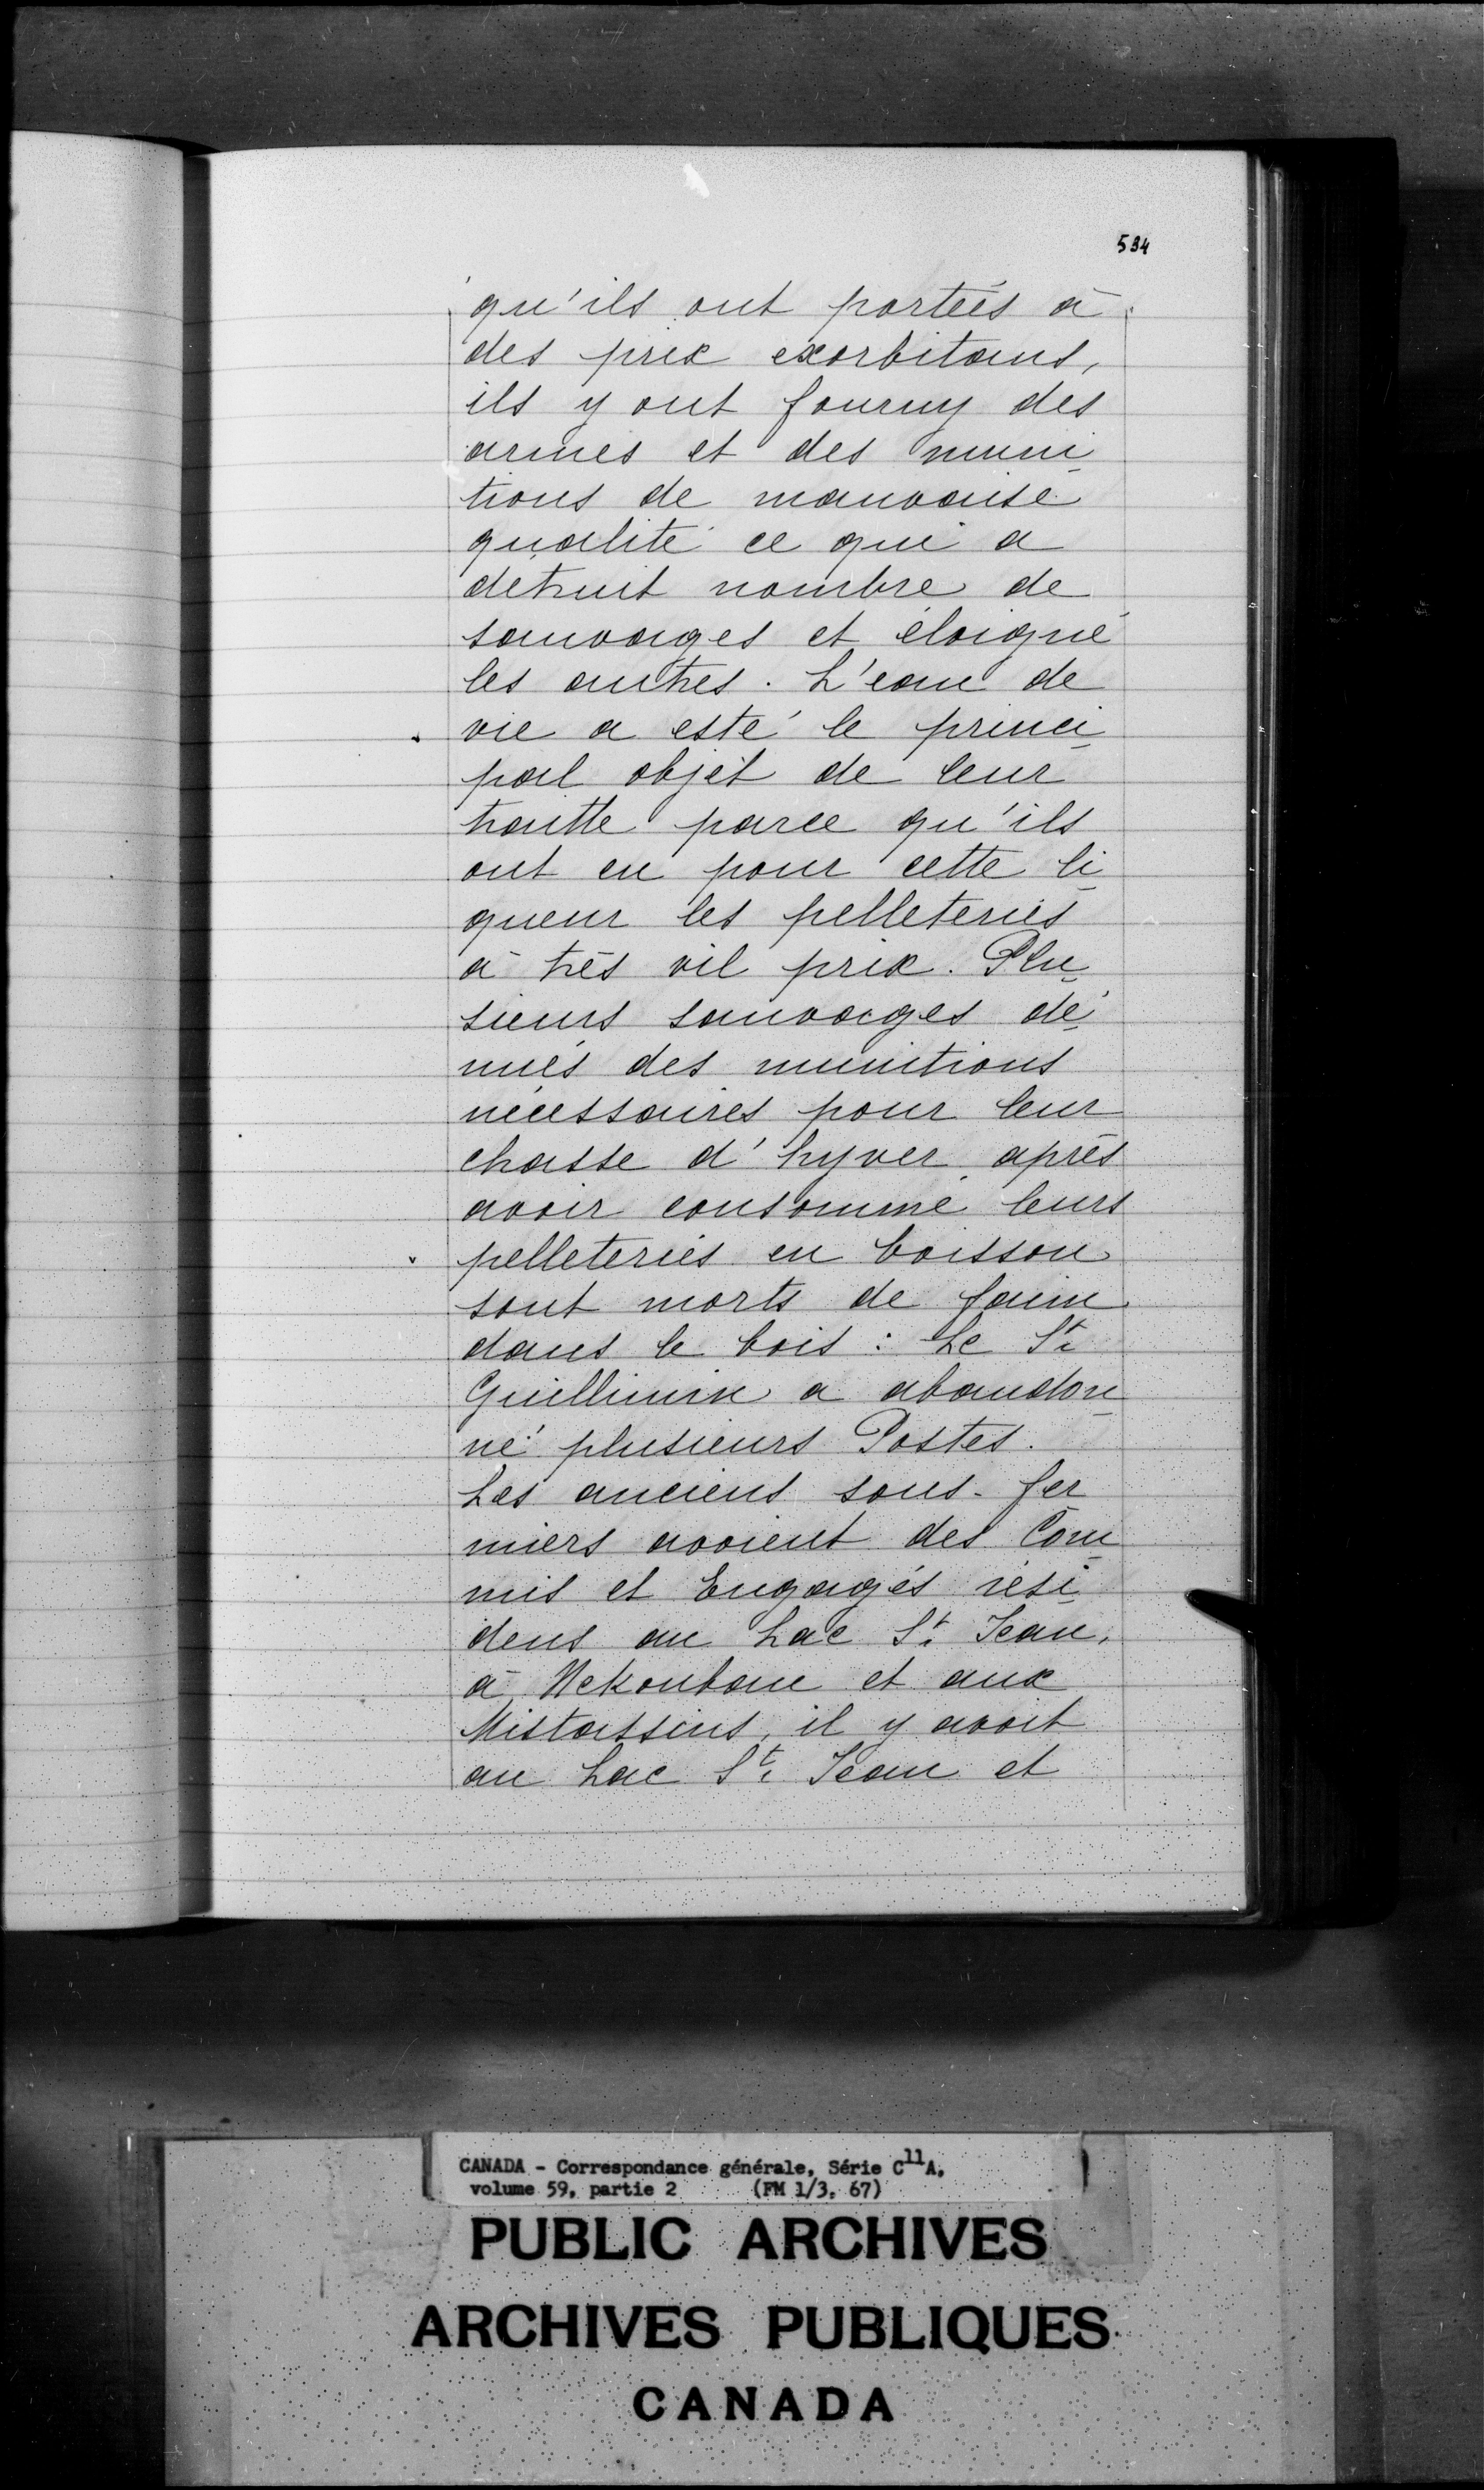 534
qu'ils ont portées à
des prix exorbitans,
ils y ont fourny des
armes et des muni
tions de mauvaise
qualité ce qui a
detruit nombre de
sauvages et éloigné
les autres. L'eau de
vie a esté le princi
pal objet de leur
traitte parce qu'ils
ont eu pour cette li
queur les pelleteries
à très vil prix. Plu
sieurs sauvages dé
nués des munitions
nécessaires pour leur
chasse d'hyver après
avoir consommé leurs
pelleteries en boisson
sont morts de faim
dans le bois : Le Sr.
Guillimin a abandon
né plusieurs Postes.
Les anciens sous-fer
miers avoient des Com
mis et Engagés rési
dens au Lac St. Jean,
à Nekoubau et aux
Mistassins, il y avoit
au Lac St. Jean et
CANADA - Correspondance générale, Série C11A,
volume 59, partie 2 (FM 1/3, 67)
PUBLIC ARCHIVES
ARCHIVES PUBLIQUES
CANADA